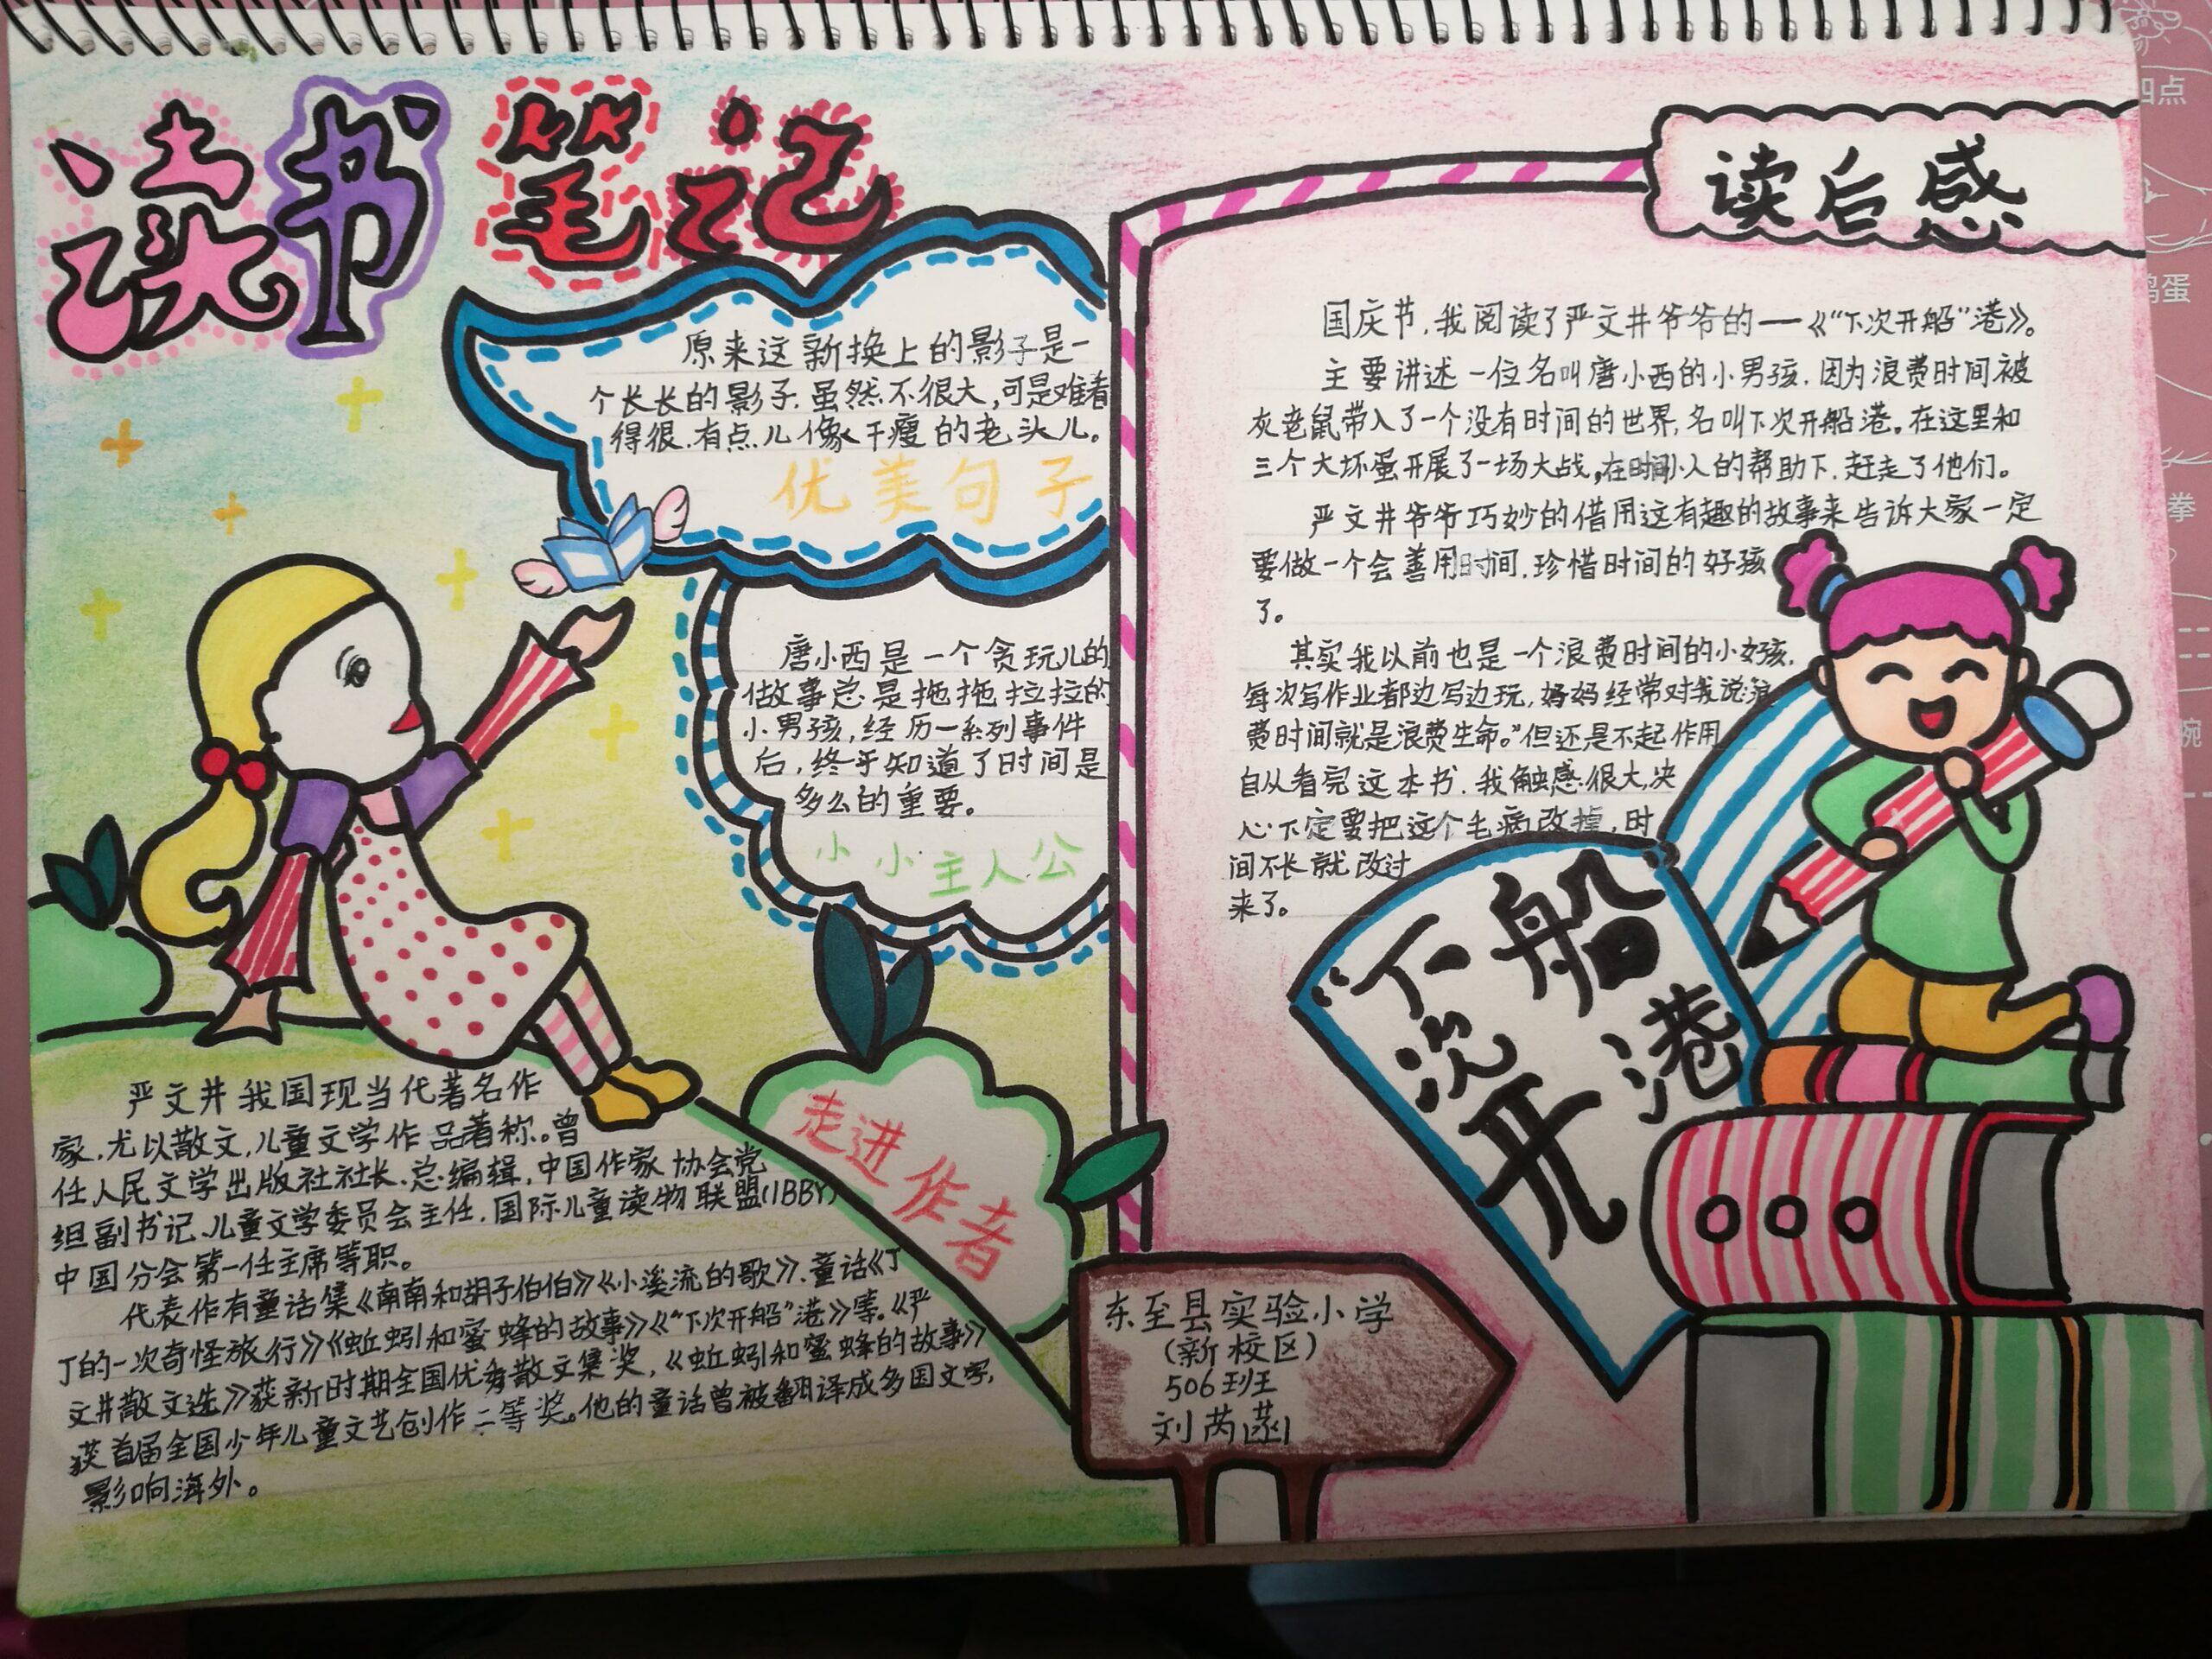 读书笔记
原来这新换上的影子是一
个长长的影子.虽然不很大,可是难看
得很.有点儿像干瘦的老头儿。
优美句子
唐小西是一个贪玩儿的
做故事总是拖拖拉拉的
小男孩,经历一系列事件
后,终乎知道了时间是
多么的重要。
小小主人公
严文井我国现当代著名作
家.尤以散文,儿童文学作品著称。曾
任人民文学出版社社长.总编辑,中国作家协会党
组副书记、儿童文学委员会主任.国际儿童读物联盟(IBBY)
中国分会第一任主席等职。
代表作有童话集《南南和胡子伯伯》《小溪流的歌》.童话《丁
丁的一次奇怪旅行》《蚯蚓和蜜蜂的故事》《“下次开船”港》等.《严
文井散文选》获新时期全国优秀散文集奖,《蚯蚓和蜜蜂的故事》
获首届全国少年儿童文艺创作二等奖。他的童话曾被翻译成多国文字,
影响海外。
走进作者
读后感
国庆节,我阅读了严文井爷爷的——《“下次开船”港》。
主要讲述一位名叫唐小西的小男孩.因为浪费时间被
灰老鼠带入了一个没有时间的世界,名叫下次开船港。在这里和
三个大坏蛋开展了一场大战,在时间小人的帮助下.赶走了他们。
严文井爷爷巧妙的借用这有趣的故事来告诉大家一定
要做一个会善用时间.珍惜时间的好孩
了。
其实我以前也是一个浪费时间的小好孩,
每次写作业都边写边玩,妈妈经常对我说:浪
费时间就是浪费生命。”但还是不起作用
自从看完这本书.我触感很大,决
心下定要把这个毛病改掉,时
间不长就改过
来了。
“下次开船港
东至县实验小学
(新校区)
506班
刘芮菡
四点
鸡蛋
拳
碗